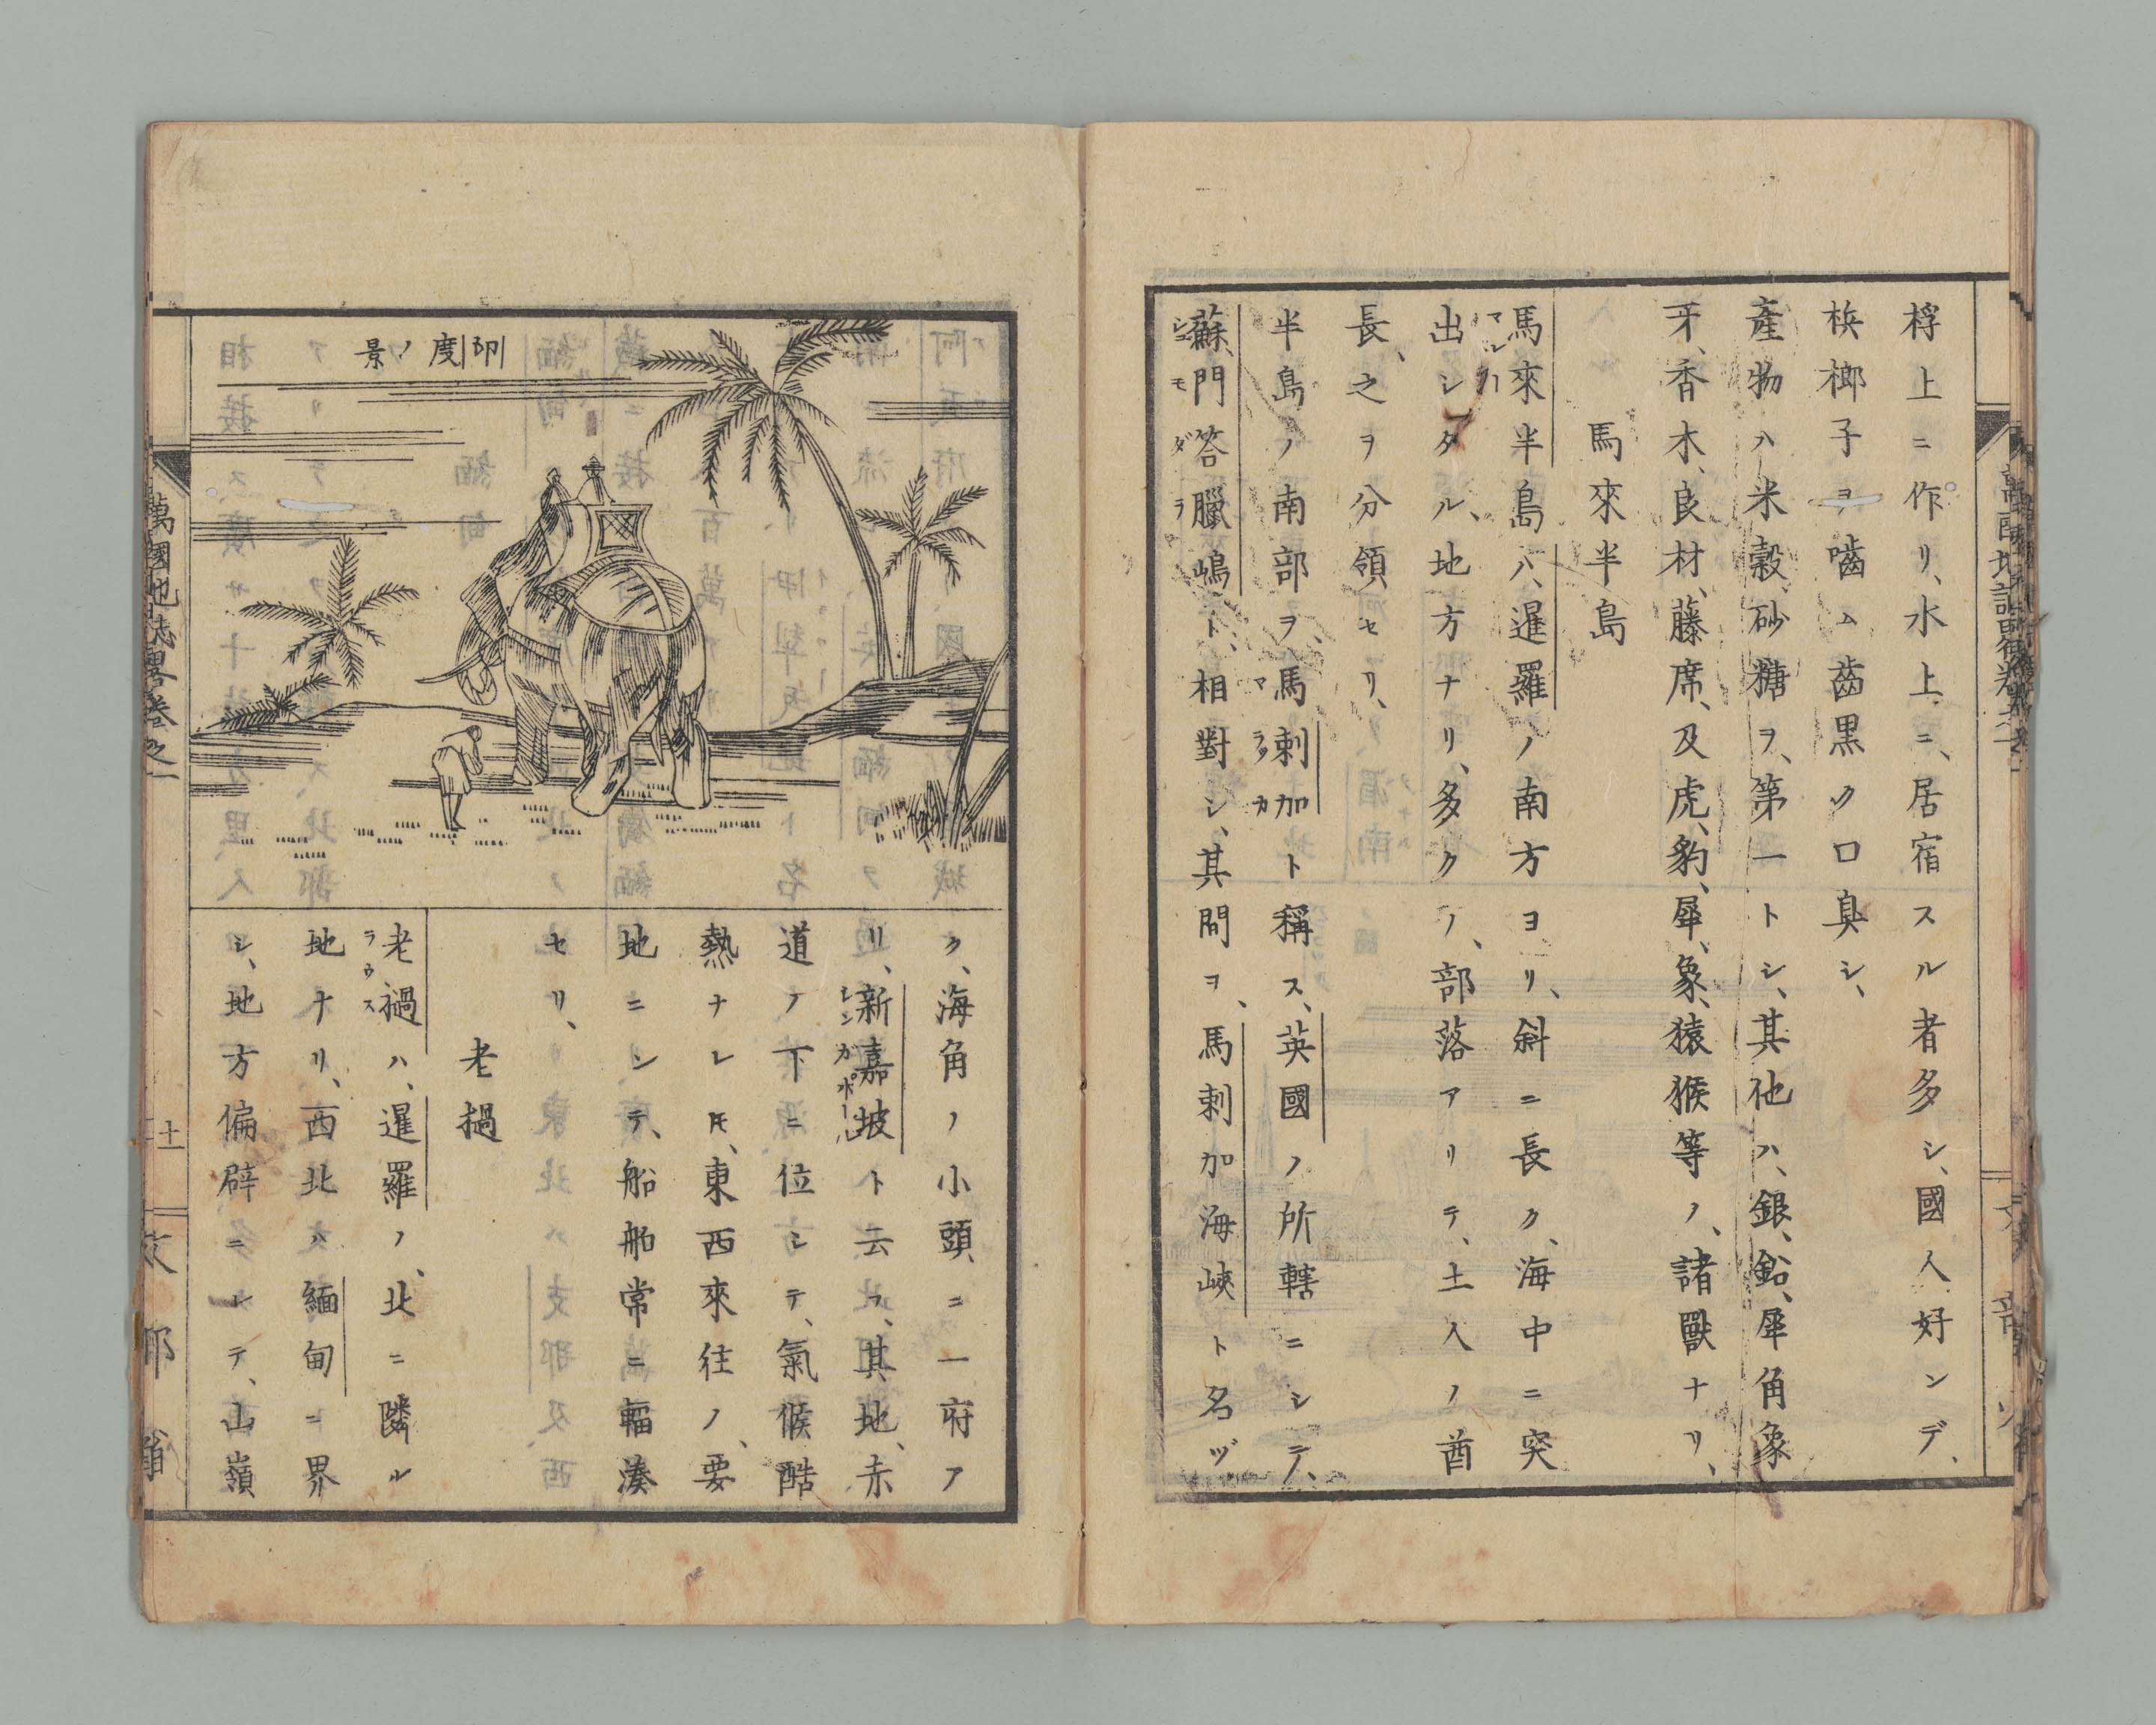 桴上ニ作リ、水上ニ、居宿スル者多シ、國人好ンデ、
檳榔子ヲ嚙ム齒黒ク口臭シ、
產物ハ米穀、砂糖ヲ、第一トシ、其他ハ、銀、鉛、犀角象
牙、香木、良材、藤席、及虎、豹、犀、象、猿猴等ノ、諸獸ナリ、
馬來半島
馬來半島ハ、暹羅ノ南方ヨリ、斜ニ長ク、海中ニ突
マレイ
出シタル、地方ナリ、多クノ、部落アリテ、土人ノ酋
長、之ヲ分領セリ、
半島ノ南部ヲ、馬剌加ト稱ス、英國ノ所轄ニシテ、
マラッカ
蘇門答臘嶋ト、相對シ、其間ヲ、馬剌加海峽ト名ヅ
シュモダラ
印度ノ景
ク、海角ノ小頭ニ一府ア
リ、新嘉坡ト云フ、其地、赤
シンガポール
道ノ下ニ位シテ、氣候酷
熱ナレ𪜈、東西來往ノ、要
地ニシテ、船舶常ニ輻湊
セリ、
老撾
老撾ハ、暹羅ノ、北ニ隣ル
ラウス
地ナリ、西北ハ緬甸ニ界
シ、地方偏辟ニシテ、山嶺
萬國地誌畧卷之一
十一
文部省